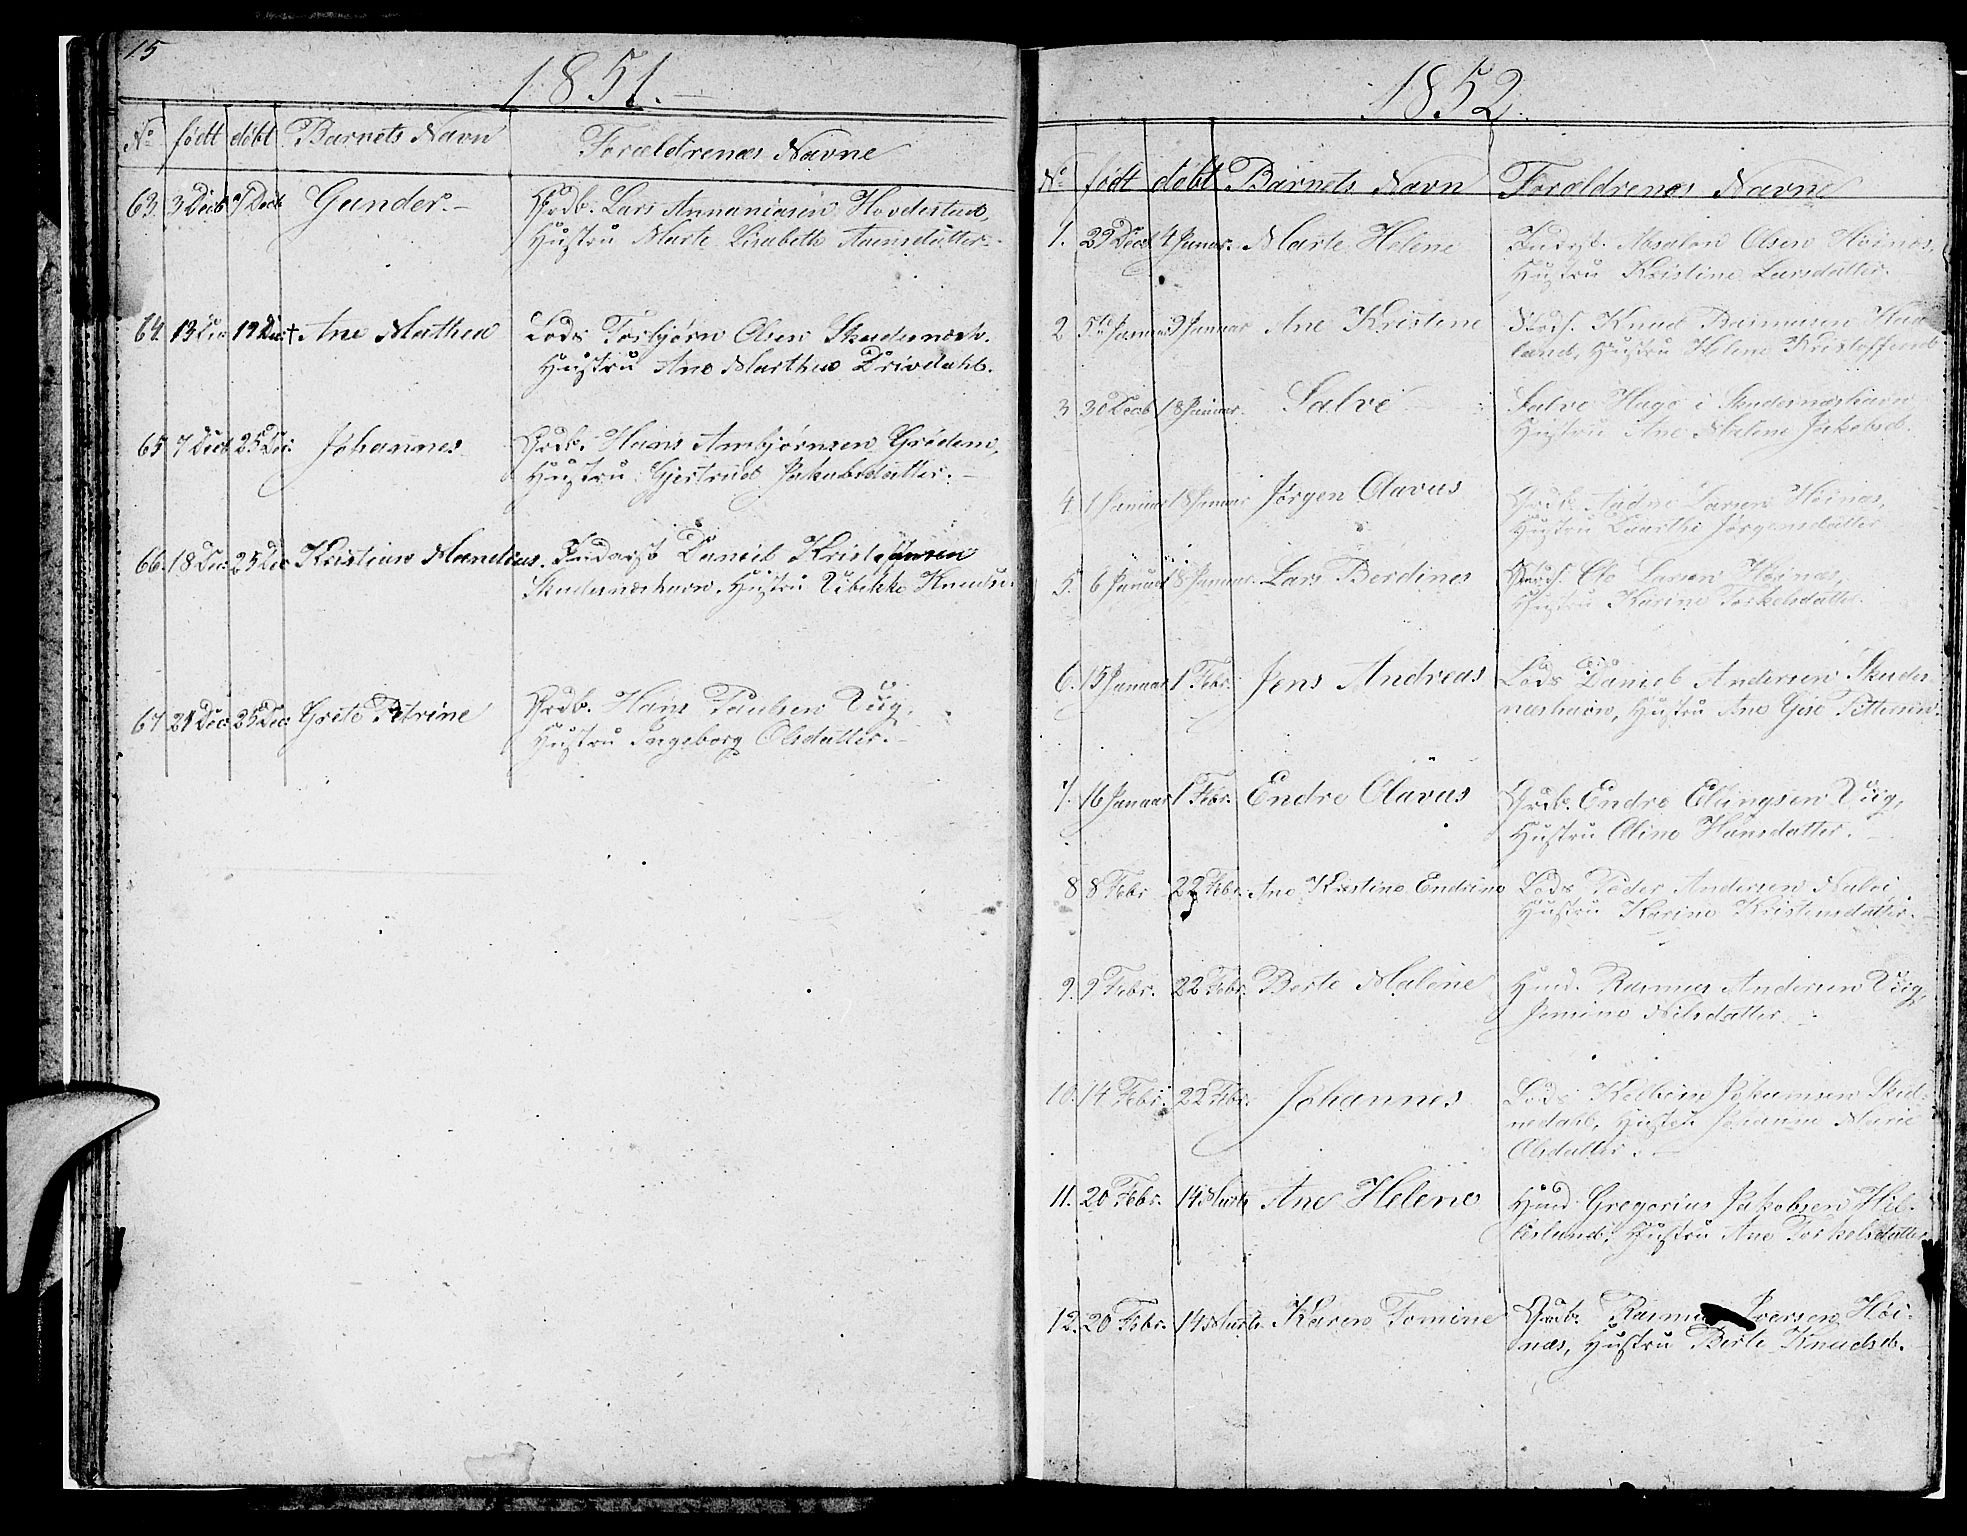 15
1851.
No født døbt Barnets Navn Forældrenes Navne
63. 3 Decb 7 Decb Gunder. Grdb. Lars Annaniasen Hovdestad,
Hustru Marte Lisabeth Amnsdatter.
64. 13 Dec 19 Dec † Ane Mathea Lods Torbjørn Olsen Skudenesh.
Hustru Ane Marthea Drivdahl.
65 7 Decb 25 Dec. Johannes Grdb. Hans Ambjørnsen Grødem,
Hustru Gjertrud Jakobsdatter.
66. 18 Dec 25 Dec Kristian Manelius. Inderst Daniel Kristjansen
Skudesnæshavn, Hustru Vibekke Knuds.
67 21 Dec 25 Dec. Grete Petrine Grdb. Hans Paulsen Viig,
Hustru Ingeborg Olsdatter.
1852.
No født døbt Barnets Navn Forældrenes Navne
1. 29 Decb 4 Januar. Marte Helene Inderst. Absalon Olsen Høinæs,
Hustru Kristine Larsdatter.
2 5 Januar 9 Januar Ane Kristine Knud Rasmusen Haa-
land, Hustru Helene Kristoffersd
3 30 Decb 18 Januar. Salve Salve Hage i Skudesnæshavn
Hustru Ane Malene Jakobsd.
4. 1 Januar 18 Januar Jørgen Olavus Grdb. Aadne Larsen Høinæs,
Hustru Jørgensdatter
5. 6 Januar 18 Januar. Lars Berdines Ole Larsen Høinæs,
Hustru Karine Torkelsdatter.
6. 15 Januar 1 Febr. Jens Andreas Lods Daniel Andersen Skudes-
næshavn, Hustru Ane Gise Pettersen.
7. 16 Januar 1 Febr. Endre Olavus Grdb. Endre Ellingsen Viig,
Hustru Oline Hansdatter.
8 8 Febr 22 Febr. Ane Kristine Endrine Lods Peder Andersen
Hustru Karine Kristensdatter.
9. 9 Febr. 22 Febr. Berte Malene Husmd. Rasmus Andersen Viig,
Jemine Nilsdatter
10. 14 Febr. 22 Febr. Johannes Lods Kolbein Johansen Skud-
nedahl, Hustru Johanne Marie
Olsdatter.
11. 20 Febr. 14 Marts Ane Helene Husmd. Gregorius Jakobsen Hil-
leslund, Hustru Ane Torkelsdatter
12. 20 Febr. 14 Marts. Karen Tomine Grdb. Rasmus Iversen Høi-
næs, Hustru Berte Knudsd.